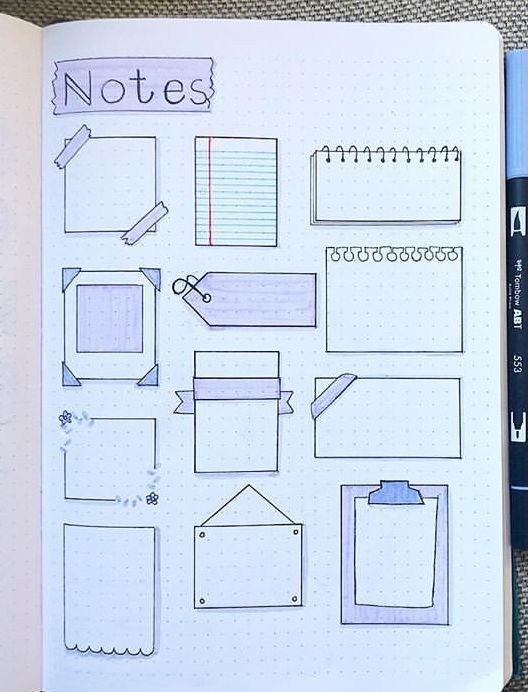 Notes
Tombow ABT
553